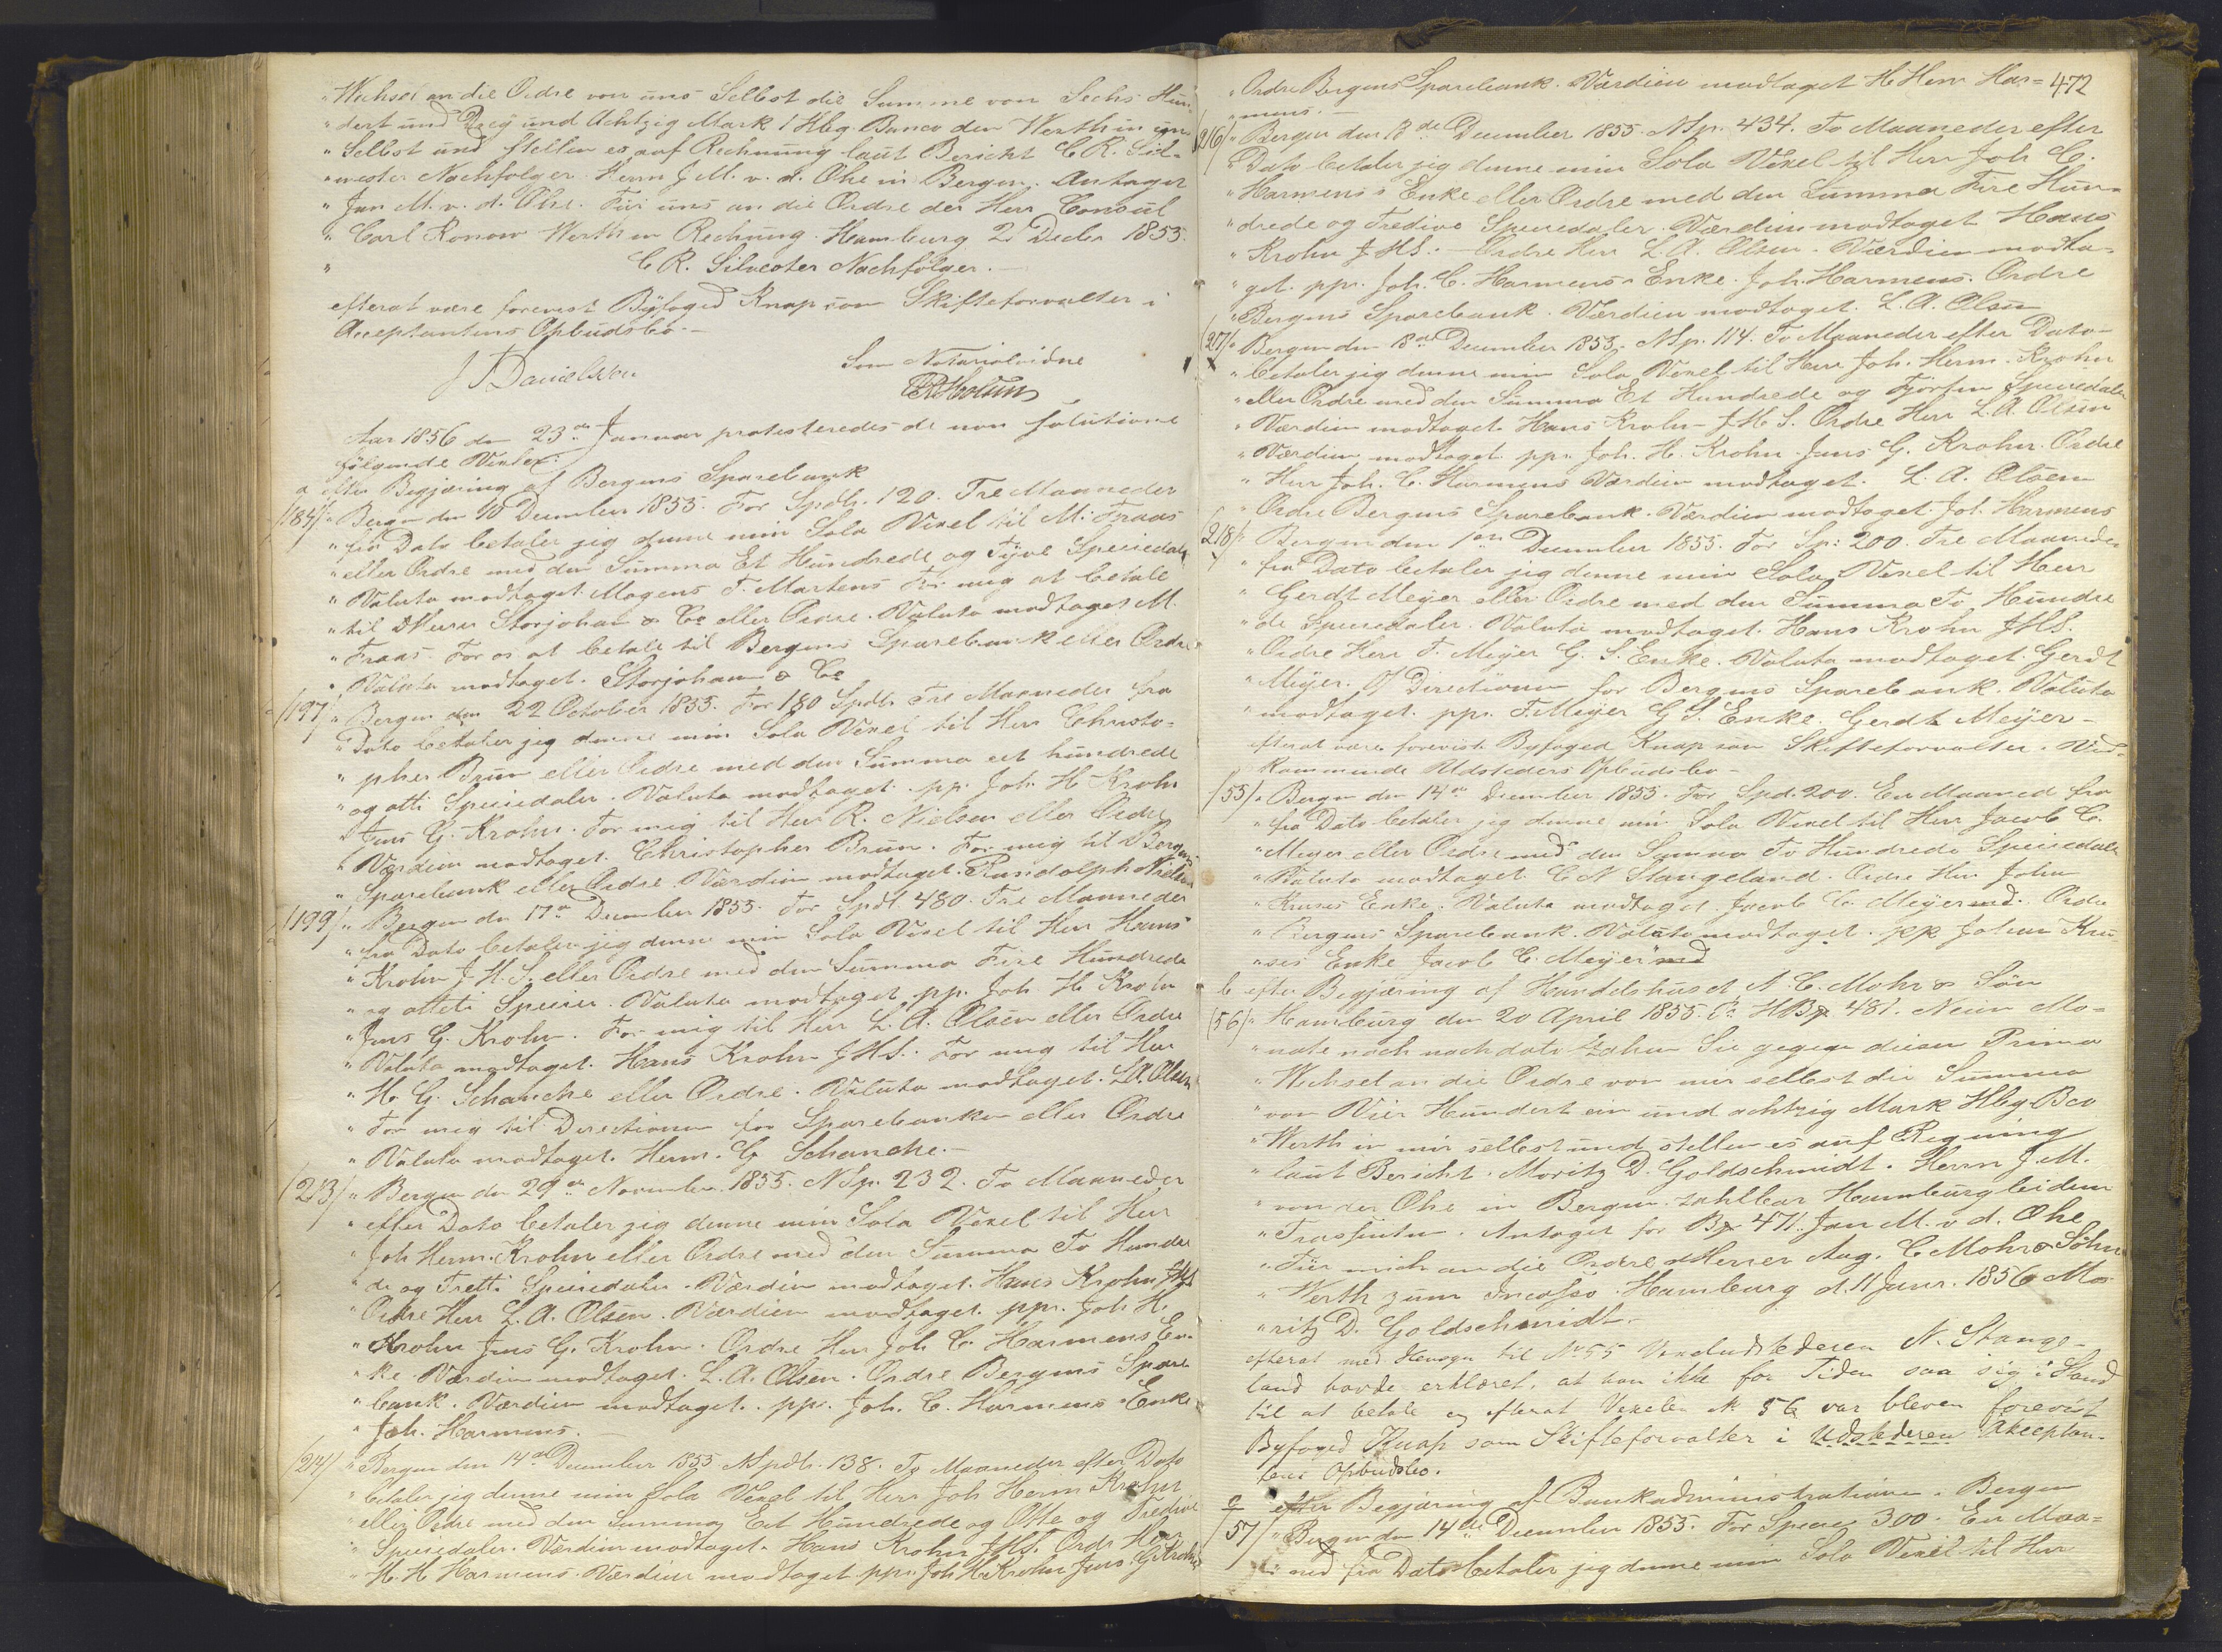 „Wechsel an die Ordre von uns Selbst die Summe von Sechs Hun-
„dert und Drey und Achtzig Mark 1 Hbg. Banco den Werth in uns
„Selbst und stellen es auf Rechnung laut Bericht C. R. Sil-
„vester Nachfolger Herrn J. M. v. d. Ohe in Bergen. Antaget
„Jan M. v. d. Ohe. Für uns an die Ordre der Herr Consul
„Carl Konow Werth in Rechnung. Hamburg 2 Decbr 1855.
„ C. R. Silvester Nachfolger.—
efterat være forevist Byfoged Knap som Skifteforvalter i
Acceptantens Opbudsbo.—
J Danielsen
Som Notarialvidne
Aar 1856 den 23de Januar protesteredes de non solutione
følgende Vexler:
a efter Begjæring af Bergens Sparebank
/184/ „Bergen den 10 December 1855. For Spdlr. 120. Tre Maaneder
„fra Dato betaler jeg denne min Sola Vexel til M. Fraas
„eller Ordre med den Summa Et Hundrede og Tyve Speciedaler
„Valuta modtaget. Mogens F. Martens. For mig at betale
„til DHerrer Storjohan & Co eller Ordre. Valuta modtaget M.
„Fraas. For os at betale til Bergens Sparebank eller Ordre
„Valuta modtaget. Storjohann & Co
/197/ „Bergen den 22 October 1855. For 180 Spdlr. Tre Maaneder fra
„Dato betaler jeg denne min Sola Vexel til Herr Christo-
„pher Brun eller Ordre med den Summa eet hundrede
„og otti Speciedaler. Valuta modtaget. pp. Joh. H. Krohn
„Jens G. Krohn. For mig til Herr R. Nielsen eller Ordre
„Værdien modtaget. Christopher Brun. For mig til Bergens
„Sparebank eller Ordre. Værdien modtaget. Randolph Nielsen
/199/ „Bergen den 17de December 1855. For Spdl. 480. Tre Maaneder
„fra Dato betaler jeg denne min Sola Vexel til Herr Hans
„Krohn J. H. S. eller Ordre med den Summa Fire Hundrede
„og otteti Specier. Valuta modtaget pp. Joh. H. Krohn
„Jens G. Krohn. For mig til Herr L. A. Olsen eller Ordre
„Valuta modtaget. Hans Krohn JHS. For mig til Herr
„H. G. Schancke eller Ordre. Valuta modtaget. L. A. Olsen
„For mig til Directionen for Sparebanken eller Ordre
„Valuta modtaget. Herm. G. Schancke.—
/213/ „Bergen den 29de November 1855. NSp. 232. To Maaneder
„efter Dato betaler jeg denne min Sola Vexel til Herr
„Joh Herm. Krohn eller Ordre med den Summa To Hundre
„de og Tretti Speciedaler. Værdien modtaget. Hans Krohn JHS
„Ordre Herr L. A. Olsen. Værdien modtaget. ppr. Joh. H.
„Krohn Jens G. Krohn. Ordre Herr Joh C. Harmens En-
„ke. Værdien modtaget. L. A. Olsen. Ordre Bergens Spare
„bank. Værdien modtaget. ppr. Joh. C. Harmens Enke.
„Joh. Harmens.—
/214/ „Bergen den 14de December 1855 NSpdlr. 138. To Maaneder efter Dato
„betaler jeg denne min Sola Vexel til Herr Joh Herm Krohn
„eller Ordre med den Summa Eet Hundrede og Otte og Tredive
„Speciedaler. Værdien modtaget. Hans Krohn JHS. Ordre Herr
„H. H. Harmens. Værdien modtaget ppr. Joh H. Krohn Jens G. Krohn
„Ordre Bergens Sparebank. Værdien modtaget H. Herm Har= 472
„mens.—
/216/ „Bergen den 13de December 1855. NSp. 434. To Maaneder efter
„Dato betaler jeg denne min Sola Vexel til Herr Joh C.
„Harmens's Enke eller Ordre med den Summa Fire Hun-
„drede og Tredive Speciedaler. Værdien modtaget Hans
„Krohn JHS.— Ordre Herr L. A. Olsen. Værdien modta-
„get. ppr. Joh. C. Harmens's Enke. Joh. Harmens. Ordre
„Bergens Sparebank. Værdien modtaget. L. A. Olsen
/217/ „Bergen den 13de December 1855. NSp. 114. To Maaneder efter Dato
„betaler jeg denne min Sola Vexel til Herr Joh. Herm. Krohn
„eller Ordre med den Summa Et Hundrede og Fjorten Speciedaler
„Værdien modtaget. Hans Krohn JHS. Ordre Herr L. A. Olsen
„Værdien modtaget ppr. Joh. H. Krohn. Jens G. Krohn. Ordre
„Herr Joh. C. Harmens Værdien modtaget. L. A. Olsen
„Ordre Bergens Sparebank. Værdien modtaget. Joh. Harmens
/218/ „Bergen den 1ste December 1855. For Sp: 200. Tre Maaneder
„fra Dato betaler jeg denne min Sola Vexel til Herr
„Gerdt Meyer eller Ordre med den Summa To Hundre
„de Speciedaler. Valuta modtaget. Hans Krohn JHS.
„Ordre Herr F. Meyer G. S. Enke. Valuta modtaget. Gerdt
„Meyer. Directionen for Bergens Sparebank. Valuta
„modtaget. ppr. F. Meyer G. S. Enke. Gerdt Meyer—
efterat være forevist Byfoged Knap som Skifteforvalter i Ved-
kommende Udsteders Opbudsbo—
/55/ „Bergen den 14de December 1855. For Spd. 200. En Maaned fra
„fra Dato betaler jeg denne min Sola Vexel til Herr Jacob C.
„Meyer eller Ordre med den Summa To Hundrede Speciedaler
„Valuta modtaget. C. N. Stangeland. Ordre Herr Johan
„Kruses Enke. Valuta modtaget. Jacob C. Meyer. Ordre
„Bergens Sparebank. Valuta modtaget. pp. Johan Kru-
„ses Enke Jacob C. Meyer
b efter Begjæring af Handelshuset A. C. Mohr & Søn
/56/ „Hamburg den 20 April 1855. 481. Neun Mo-
„nate nach nach dato zahlen Sie gegen diesen Prima
„Wechsel an die Ordre von mir selbst die Summa
„von Vier Hundert ein und achtzig Mark Hbg. Bco
„Werth in mir selbst und stellen es auf Regning
„laut Bericht. Moritz D. Goldschmidt. Herrn J. M.
„von der Ohe in Bergen. zahlbar Hamburg bei dem
„. Antaget for 471. Jan M. v. d. Ohe
„Für mich an die Ordre dHerrer Aug. C. Mohr & Sohn
„Werth zum Incasso. Hamburg d. 11 Janr. 1856 Mo-
„ritz D. Goldschmidt.—
efterat med Hensyn til No 55 Vexeludstederen N. Stange-
land havde erklæret, at han ikke for Tiden saa sig i Stand
til at betale og efterat Vexelen No 56 var bleven forevist
Byfoged Knap som Skifteforvalter i Udstederen Akceptan-
tens Opbudsbo.
c efter Begjæring af Bankadministrationen i Bergen
/57/ „Bergen den 14de December 1855. For Specier 300. En Maa=
„ned fra Dato betaler jeg denne min Sola Vexel til Herr